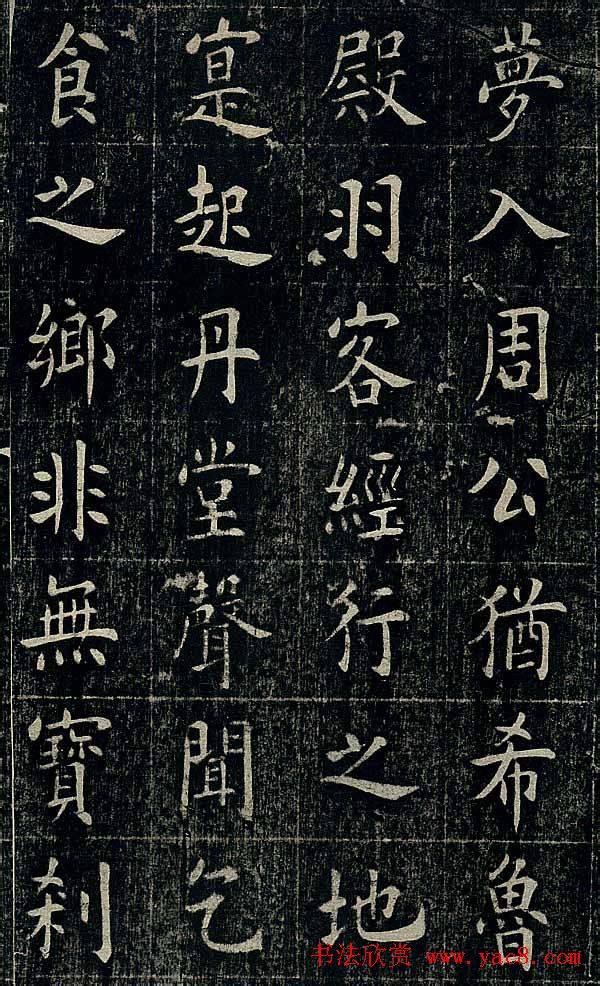 夢入周公猶希魯
殿羽客經行之地
寔起丹堂聲聞乞
食之鄉非無寶剎
书法欣赏 www.yac8.com